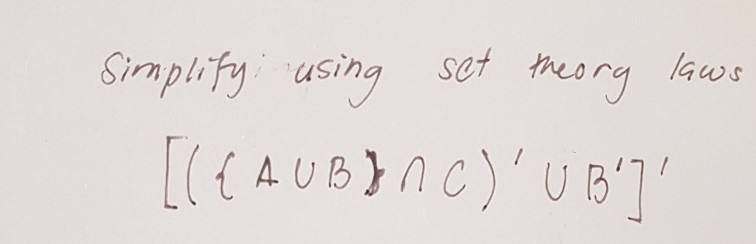 Simplify using set theory laws
[({A∪B}∩C)′∪B′]′